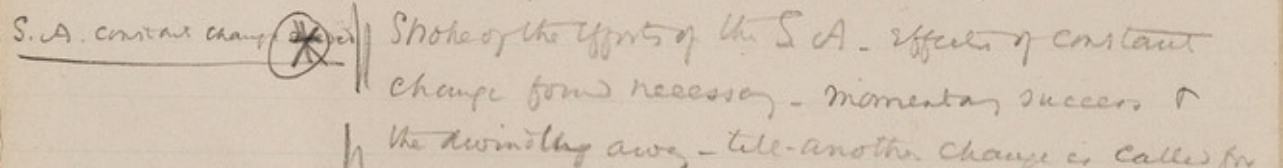 S. A. constant change
Spoke of the efforts of the S A - effects of constant
change found necessary - momentary success &
the dwindling away - till another change is called for